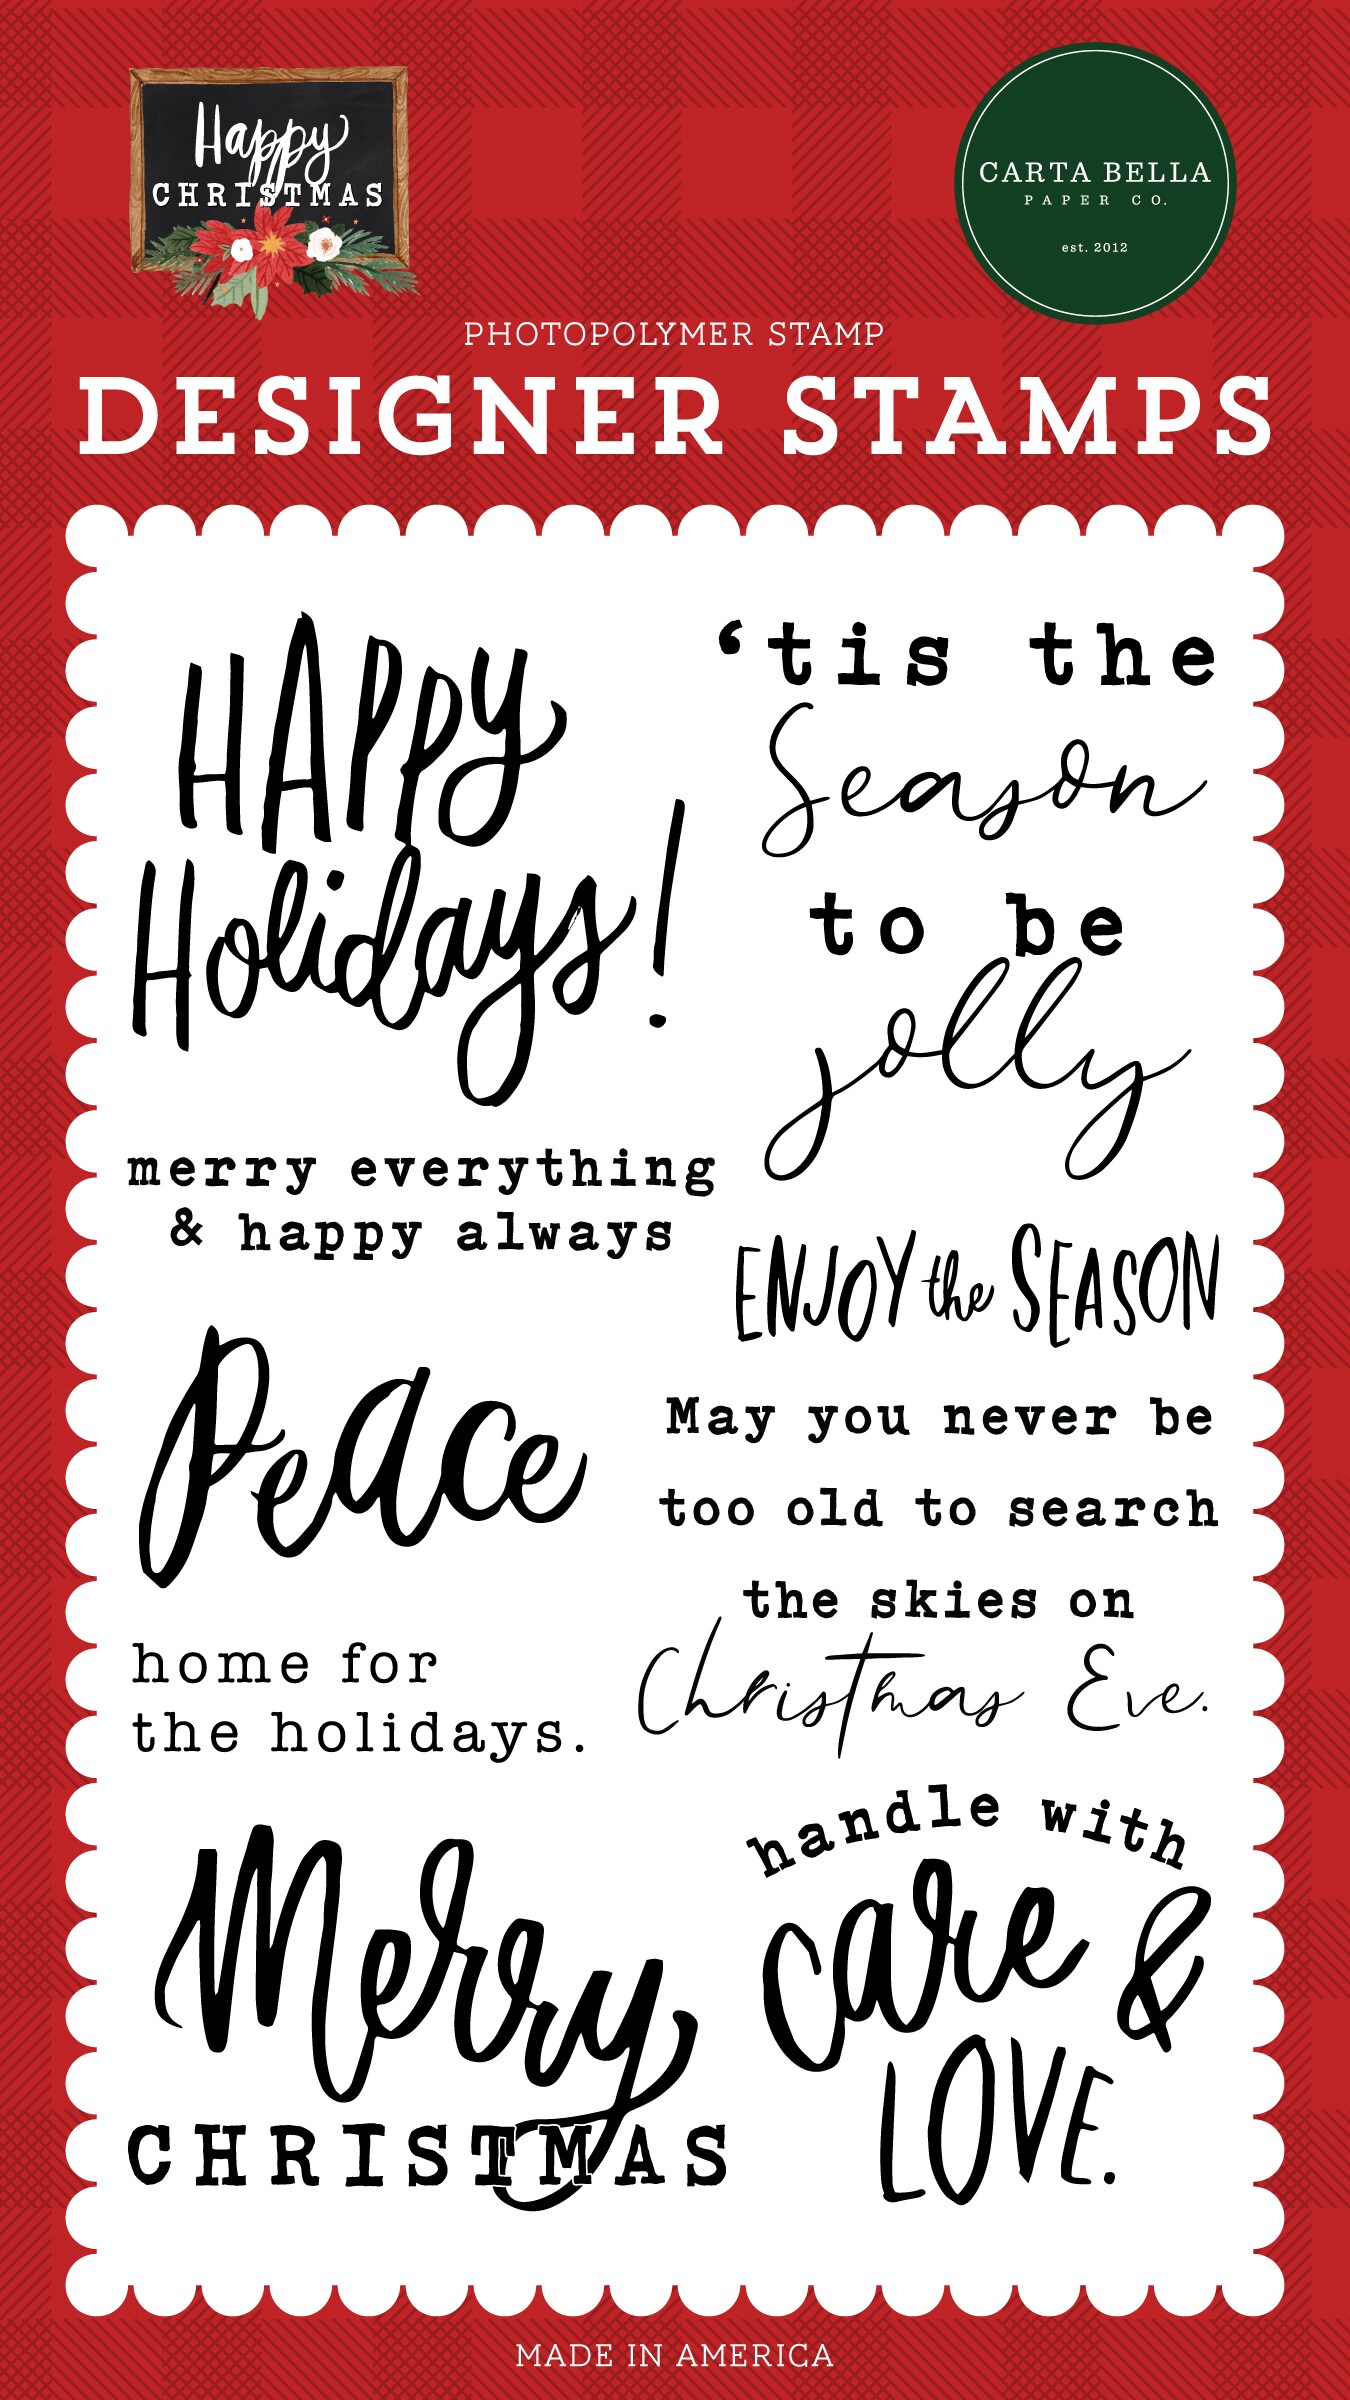 Happy
CHRISTMAS
CARTA BELLA
PAPER CO.
est. 2012
PHOTOPOLYMER STAMP
DESIGNER STAMPS
HAPPY
Holidays!
‘tis the
Season
to be
jolly
merry everything
& happy always
ENJOY the SEASON
Peace
May you never be
too old to search
the skies on
Christmas Eve.
home for
the holidays.
Merry
CHRISTMAS
handle with
care &
LOVE.
MADE IN AMERICA